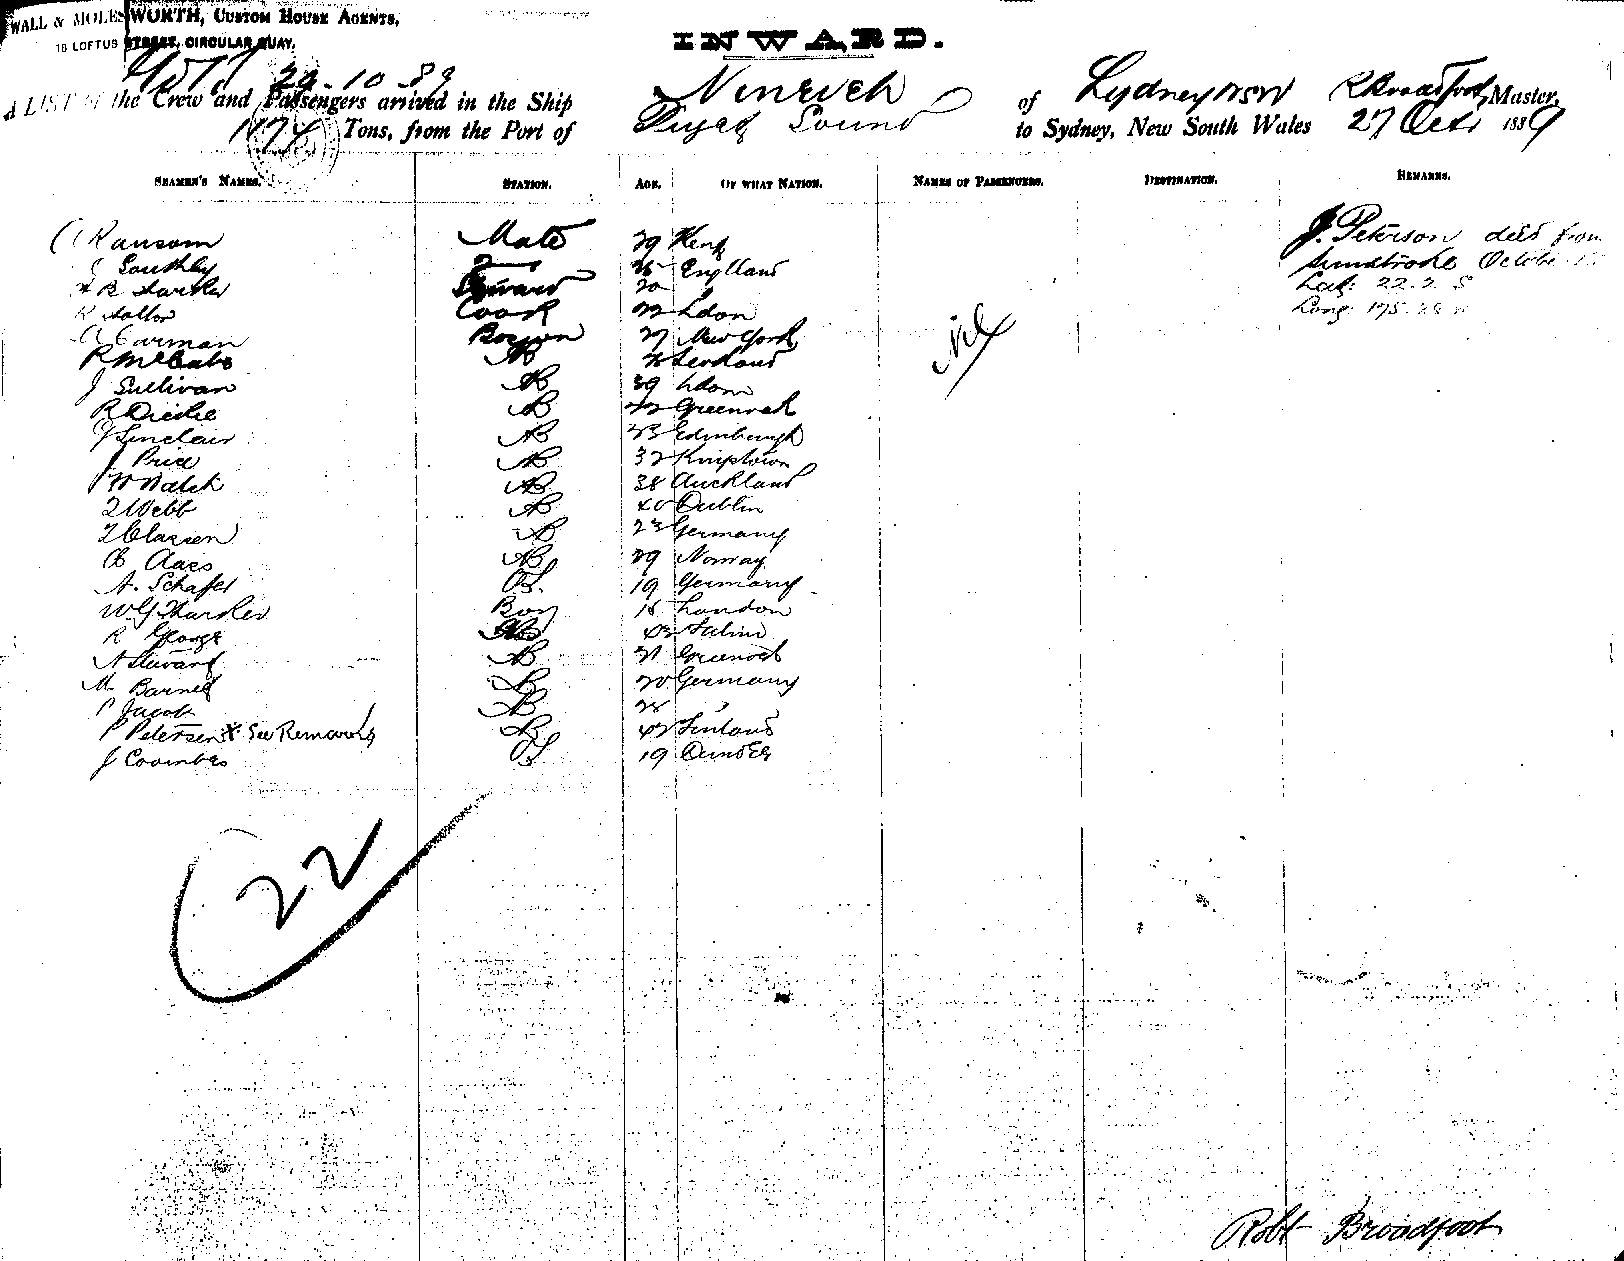 WALL & MOLESWORTH, CUSTOM HOUSE AGENTS,
16 LOFTUS STREET, CIRCULAR QUAY.
INWARD.
29-10-89
LIST of the Crew and Passengers arrived in the Ship Nineveh of Sydney NSW R Broadfoot, Master,
1174 Tons, from the Port of Puget Sound to Sydney, New South Wales 27 Oct 1889
SEAMEN'S NAMES. STATION. AGE. OF WHAT NATION. NAMES OF PASSENGERS. DESTINATION. REMARKS.
Ransom Mate 29 Kent J. Peterson died from
J Southby 2 England Sunstroke October
R Steward 20 Lat: 22.2 S
R Cook Ldon Nil Long: 175
Carman Bosson 27 New York
R McCabe AB
J Sullivan AB 39 Ldon
R Dickie AB Greenock
Sinclair AB 23 Edinburgh
J Price AB 32 Kingstown
W Walsh AB 38 Auckland
Webb AB 40 Dublin
Clasien AB 23 Germany
Aaes AB 29 Norway
A. Schafel OS. 19 Germany
W.G. Tharker Boy 16 London
R George AB
A Steward AB 21 Greenock
M Barnet AB 20 Germany
P Jacob AB 28 "
P Petersen X See Remarks AB 42 Finland
J Coombes OS 19 Dundee
22
Robt Broadfoot